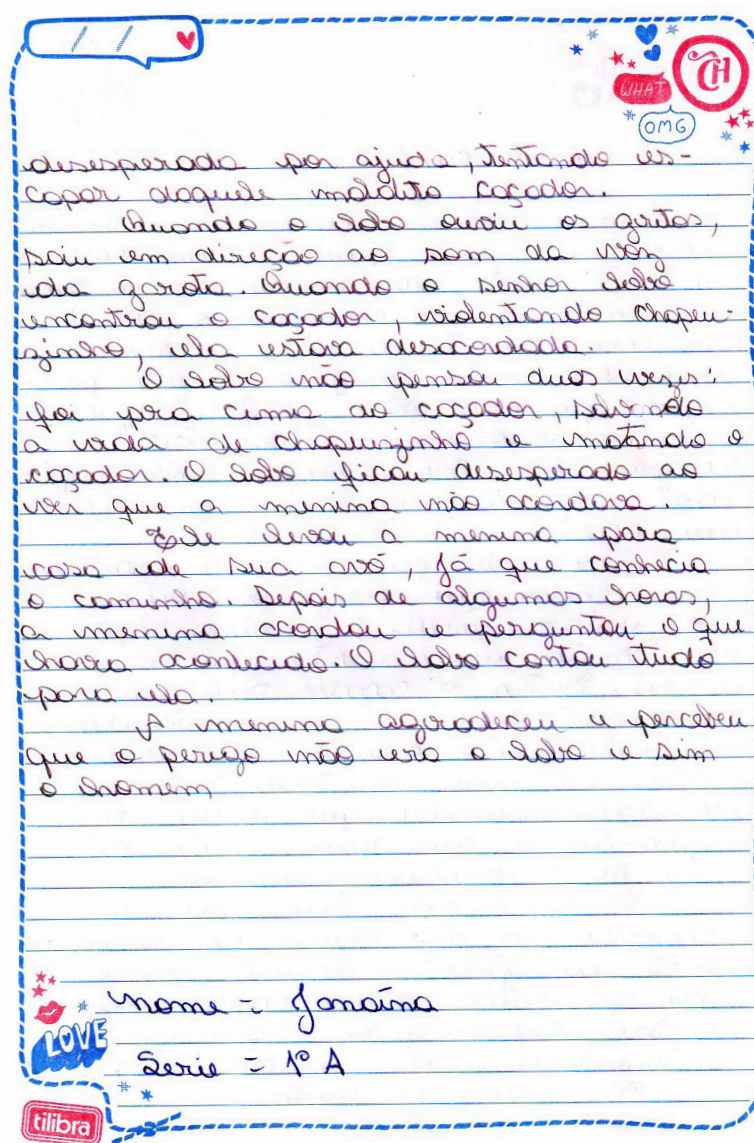 / /
CH
WHAT
OMG
desesperada por ajuda, tentando es-
capar daquele maldito caçador.
Quando o lobo ouviu os gritos,
saiu em direção ao som da voz
da garota. Quando o senhor lobo
encontrou o caçador, violentando chapeu-
zinho, ela estava desacordada.
O lobo não pensou duas vezes:
foi pra cima do caçador, salvando
a vida de chapeuzinho e matando o
caçador. O lobo ficou desesperado ao
ver que a menina não acordava.
Ele levou a menina para
casa de sua avó, já que conhecia
o caminho. Depois de algumas horas,
a menina acordou e perguntou o que
havia acontecido. O lobo contou tudo
para ela.
A menina agradeceu e percebeu
que o perigo não era o lobo e sim
o homem
nome = Janaína
LOVE
Serie = 1º A
tilibra